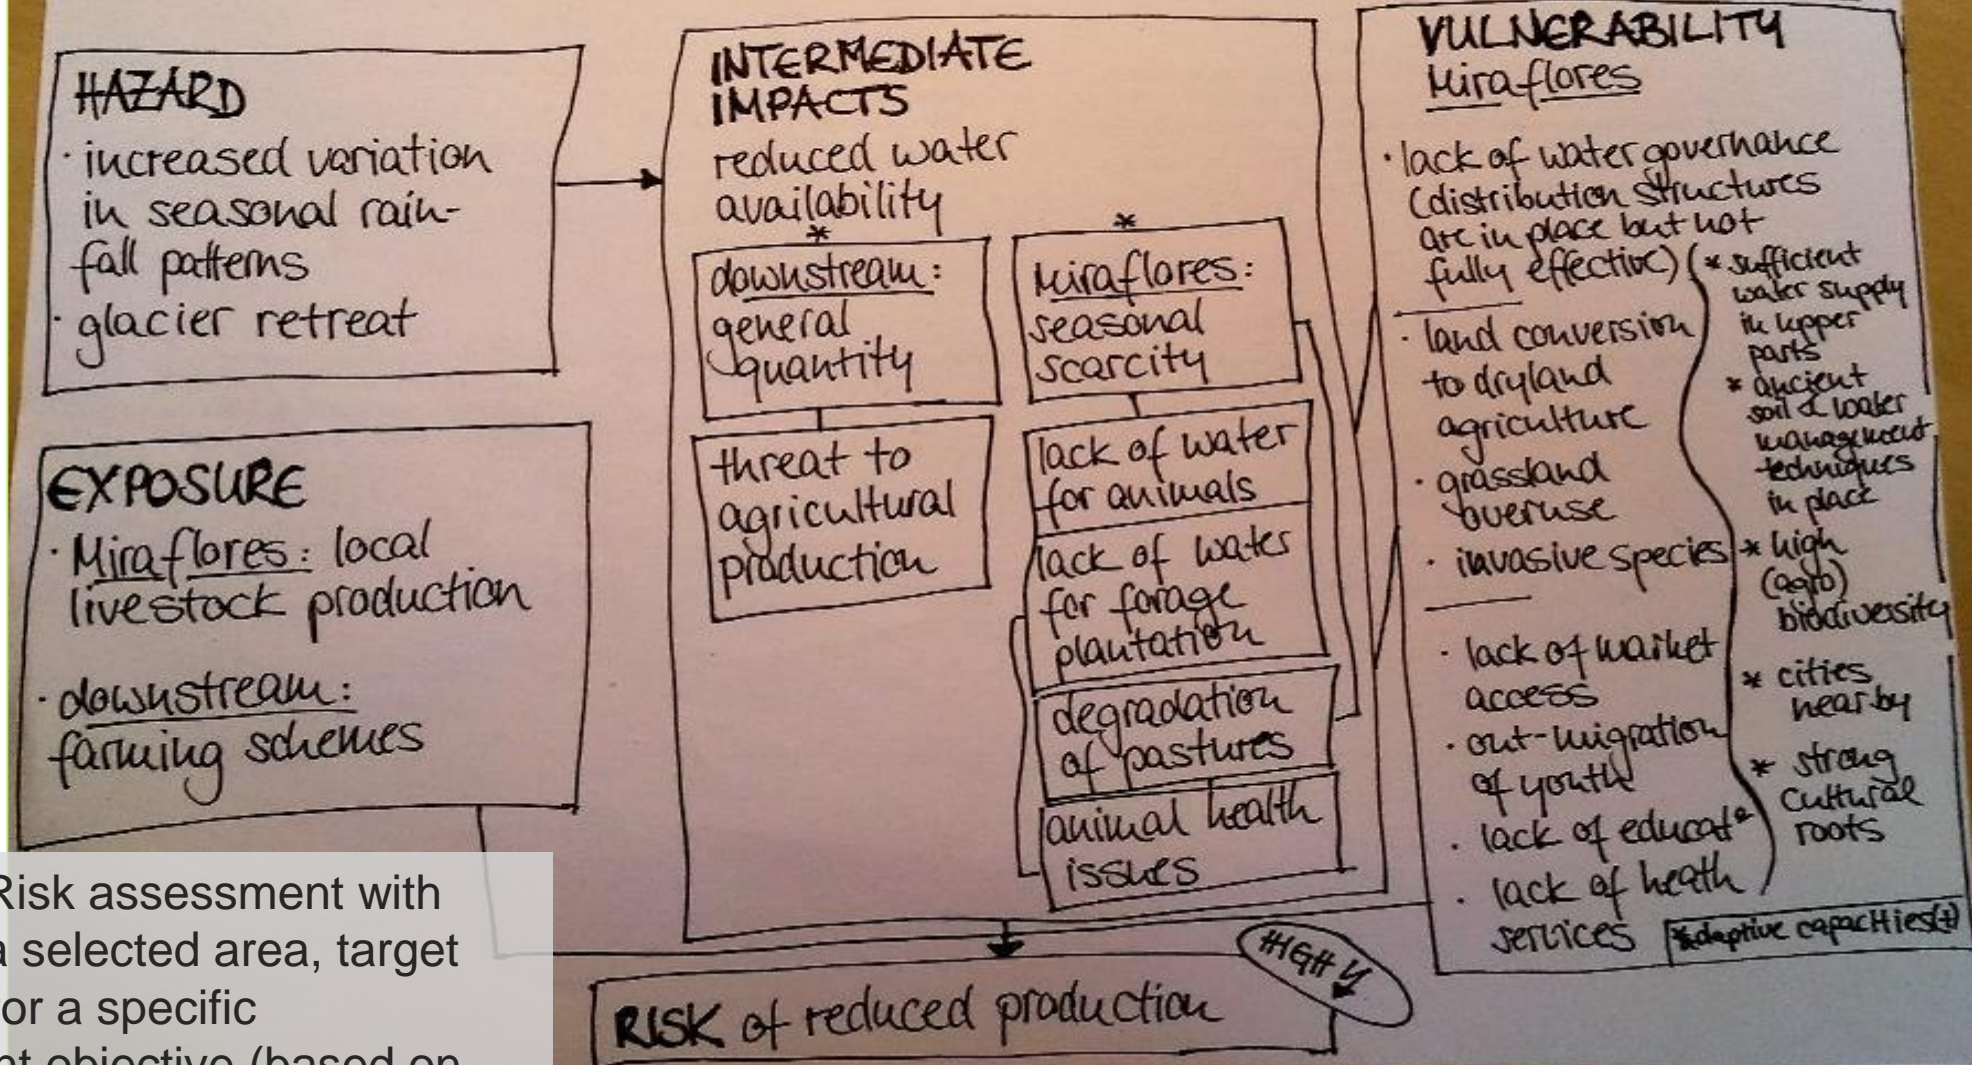 HAZARD
· increased variation
in seasonal rain-
fall patterns
· glacier retreat
EXPOSURE
· Miraflores: local
livestock production
· downstream:
farming schemes
INTERMEDIATE
IMPACTS
reduced water
availability
*
downstream:
general
quantity
threat to
agricultural
production
*
Miraflores:
seasonal
scarcity
lack of water
for animals
lack of water
for forage
plantation
degradation
of pastures
animal health
issues
VULNERABILITY
Miraflores
· lack of water governance
(distribution structures
are in place but not
fully effective)
· land conversion
to dryland
agriculture
· grassland
overuse
· invasive species
· lack of market
access
· out-migration
of youth
· lack of educat°
· lack of heath
services
* sufficient
water supply
in upper
parts
* ancient
soil & water
management
techniques
in place
* high
(agro)
biodiversity
* cities
nearby
* strong
cultural
roots
*adaptive capacities(+)
RISK of reduced production
HIGH
Risk assessment with
a selected area, target
or a specific
nt objective (based on